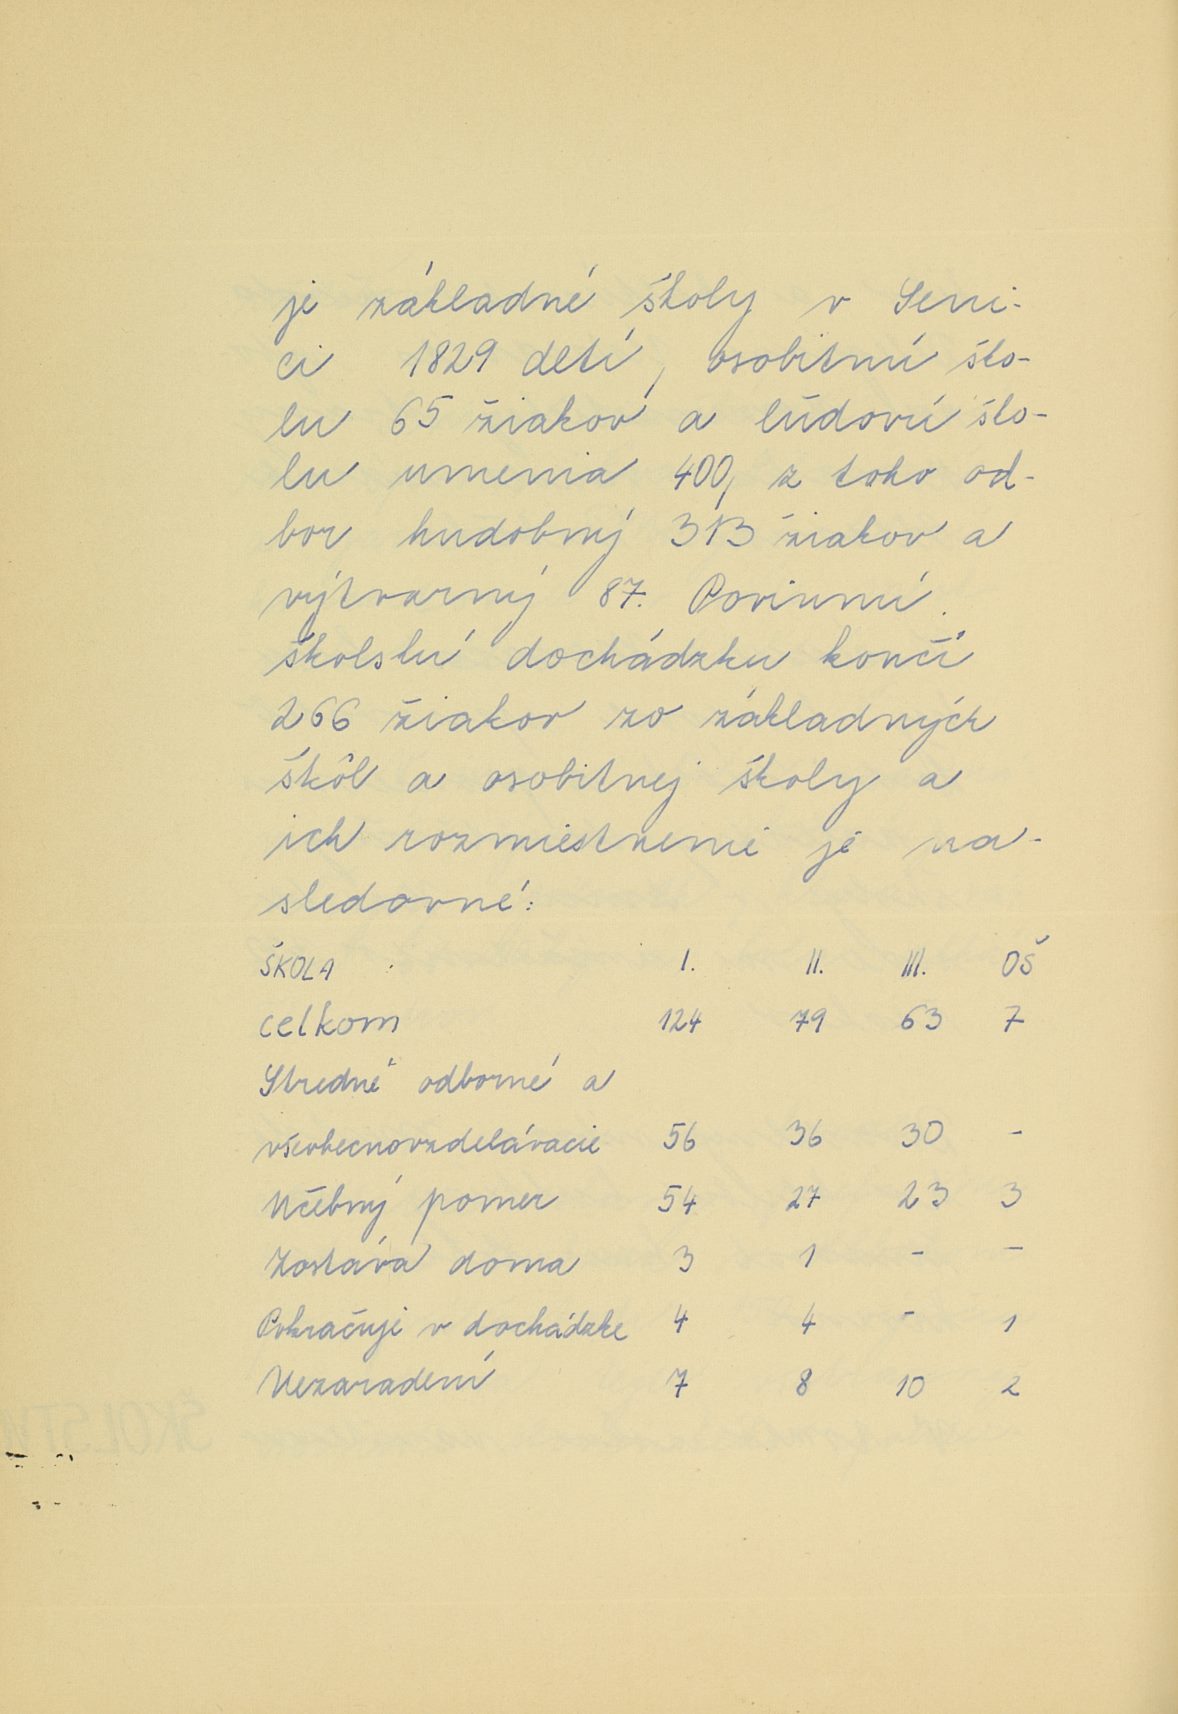 je základné školy v Seni-
ci 1829 detí, osobitnú ško-
lu 65 žiakov a ľudovú ško-
lu umenia 400, z toho od-
bor hudobný 313 žiakov a
výtvarný 87. Povinnú
školskú dochádzku končí
266 žiakov zo základných
škôl a osobitnej školy a
ich rozmiestnenie je na-
sledovné:
ŠKOLA I. II. III. OŠ
celkom 124 79 63 7
Stredné odborné a
všeobecnovzdelávacie 56 36 30 -
Učebný pomer 54 27 23 3
Zostáva doma 3 1 - -
Pokračuje v dochádzke 4 4 - 1
Nezaradení 7 8 10 2